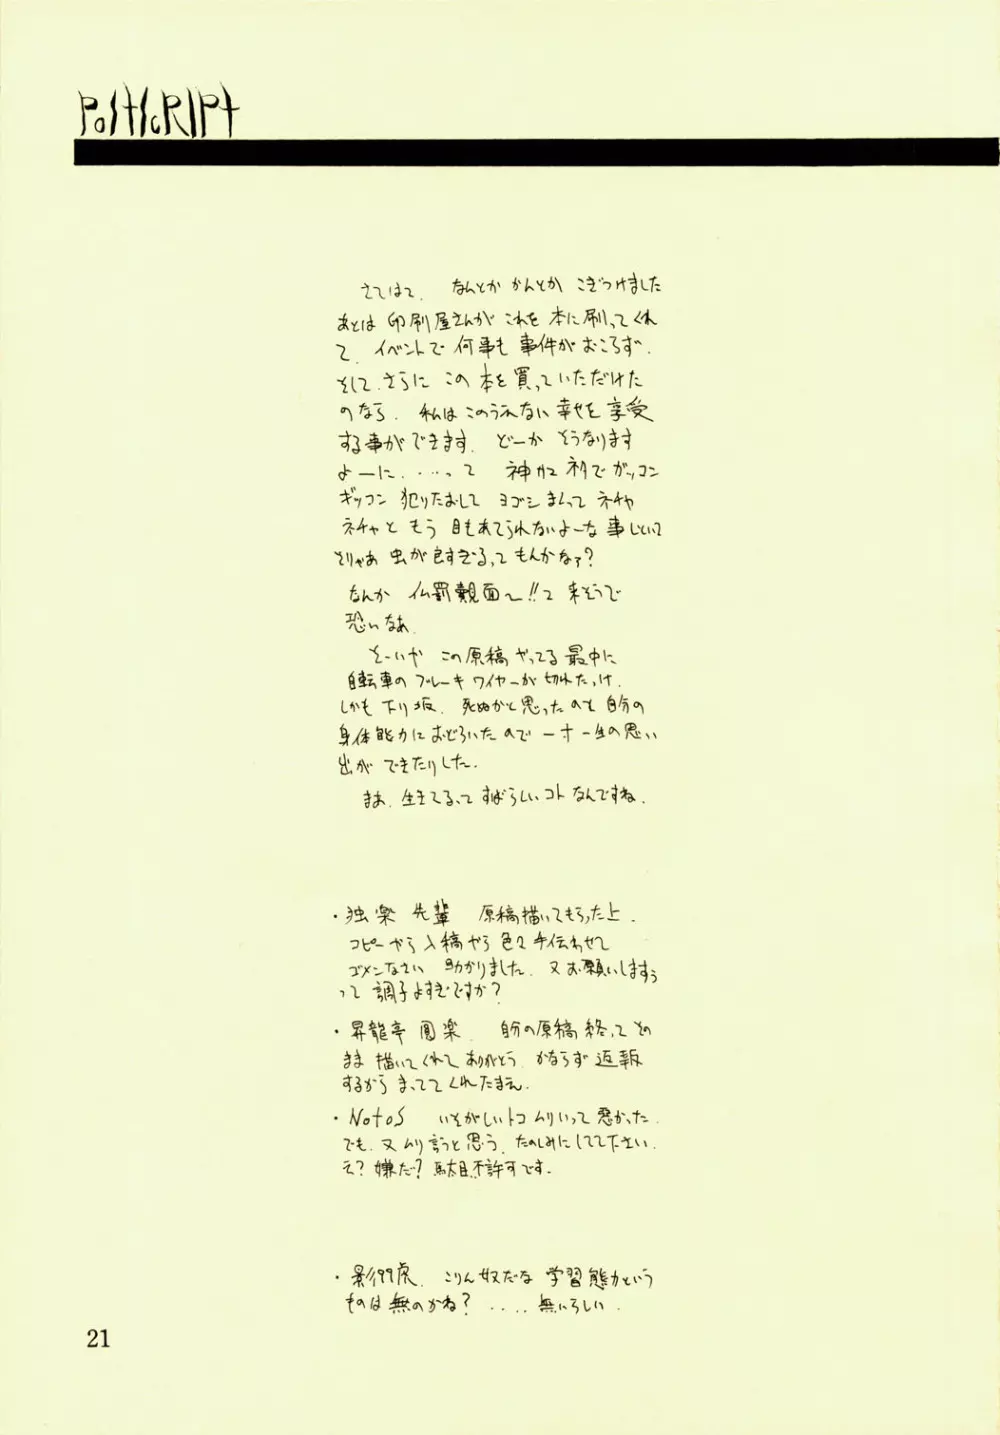 PostScRIPt
さてはて、なんとか かんとか こぎつけました
あとは 印刷屋さんが これを 本に刷ってくれ
て、イベントで 何事も 事件が おこらず、
そして、さらに この 本を 買って いただけた
のなら、私は このうえない 幸せを 享受
する事ができます。どーか そうなります
よーに、・・・って 神 で ガッコン
ギッコン 犯りたおして ヨゴシまくって ネチャ
ネチャと もう 目もあてられないよーな 事しといて
そりゃあ 虫が良すぎるって もんかなァ?
なんか 仏罰覿面〜!!て 来そうで
恐いなあ。
そーいや この原稿 やってる 最中に
自転車の ブレーキ ワイヤーが 切れたっけ。
しかも 下り坂。死ぬかと思ったのと 自分の
身体能力に おどろいたので 一寸 一生の思い
出が できたりした。
まあ、生きてるって すばらしい コト なんですね。
・独楽 先輩 原稿描いてもらった上、
コピーやら 入稿やら 色々 手伝わせて
ゴメンなさい 助かりました。又 お願いしますぅ
って 調子よすぎですか?
・昇龍亭 圓楽、自分の原稿 終って その
まま 描いてくれて ありがとう。かならず 返報
するから まっててくれたまえ。
・NotoS いそがしいトコ ムリいって 悪かった。
でも、又 ムリ 言うと思う。たのしみにしてて下さい。
え? 嫌だ? 駄目、不許可です。
・影99虎、こりん奴だな 学習能力という
ものは 無のかね? ・・・・無いらしい。
21